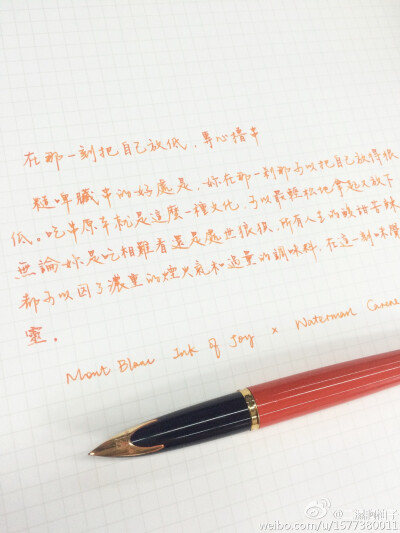 在那一刻把自己放低，專心擼串
擼啤臟串的好處是，妳在那一刹那可以把自己放得很
低。吃串原本就是這麼一種文化，可以最輕松地拿起又放下
無論妳是吃相難看還是處世狼狽，所有人生的酸甜苦辣
都可以因了濃重的煙火氣和適量的調味料，在這一刻味覺
靈。
Mont Blanc Ink of Joy x Waterman Carene
weibo.com/u/1577380011